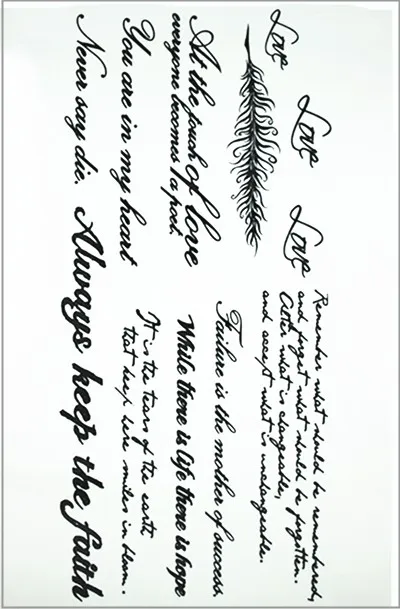 Love
Love
Love
Remember what should be remembered,
and forget what should be forgotten.
Alter what is changeable,
and accept what is unchangeable.
At the touch of love
everyone becomes a poet.
Failure is the mother of success.
You are in my heart
While there is life there is hope
It is the tears of the earth
that keep here smiles in bloom.
Never say die.
Always keep the faith